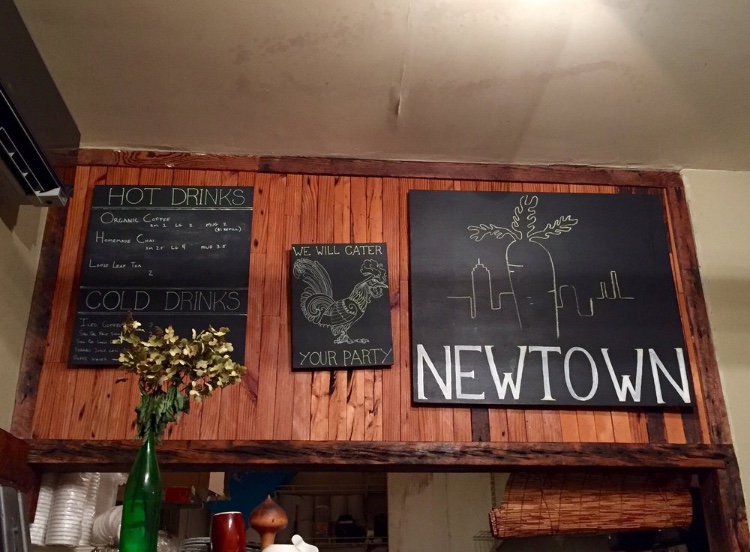 HOT DRINKS
ORGANIC COFFEE
SM 2 LG 3 MUG 2
(REFILL)
HOMEMADE CHAI
SM 2.5 LG 4 MUG 3.5
LOOSE LEAF TEA
2
COLD DRINKS
ICED COFFEE
WE WILL CATER
YOUR PARTY
NEWTOWN